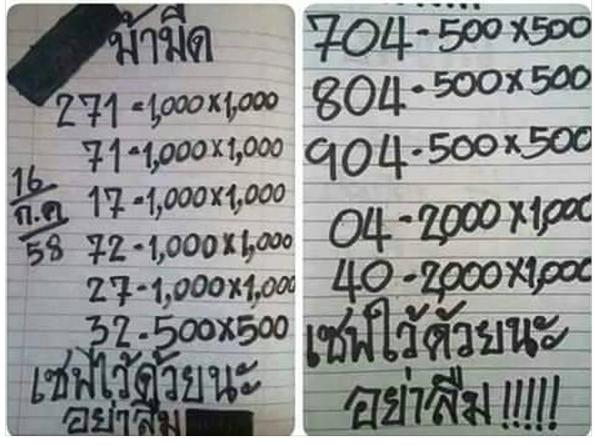 ม้ามืด
271-1,000x1,000
71-1,000x1,000
16
ก.ค
58
17-1,000x1,000
72-1,000x1,000
27-1,000x1,000
32-500x500
เซฟไว้ด้วยนะ
อย่าลืม
704-500x500
804-500x500
904-500x500
04-2,000x1,000
40-2,000x1,000
เซฟไว้ด้วยนะ
อย่าลืม!!!!!